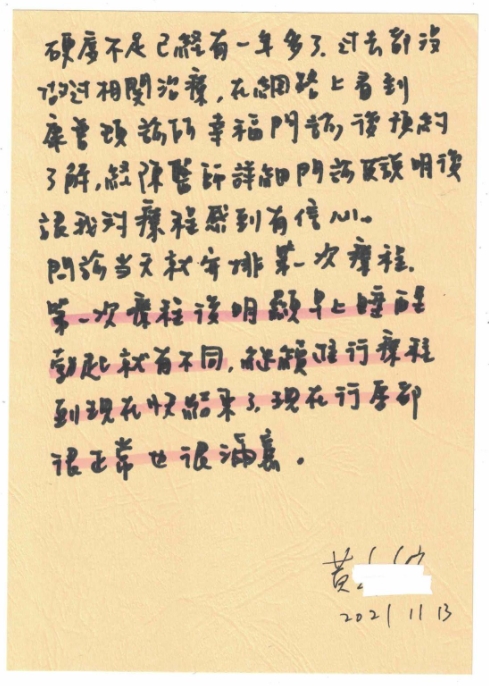 硬度不足已經有一年多了，过去都沒
做过相関治療，在網路上看到
康曼頓診所幸福門診，後預約
了解，經陳醫師詳細問診及說明後
讓我对療程感到有信心。
門診当天就安排第一次療程，
第一次療程後明顯早上睡醒
勃起就有不同，継續進行療程
到現在快結束了，現在行房都
很正常也很滿意。
黃
2021 11 13